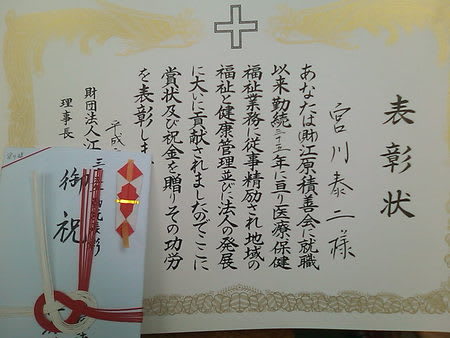 表彰状
宮川泰二様
あなたは(財)江原積善会に就職
以来勤続三十五年に亘り医療保健
福祉業務に従事精励され地域の
福祉と健康管理並びに法人の発展
に大いに貢献されましたのでここに
賞状及び祝金を贈りその功労
を表彰しま
平成
財団法人江
理事長
御祝